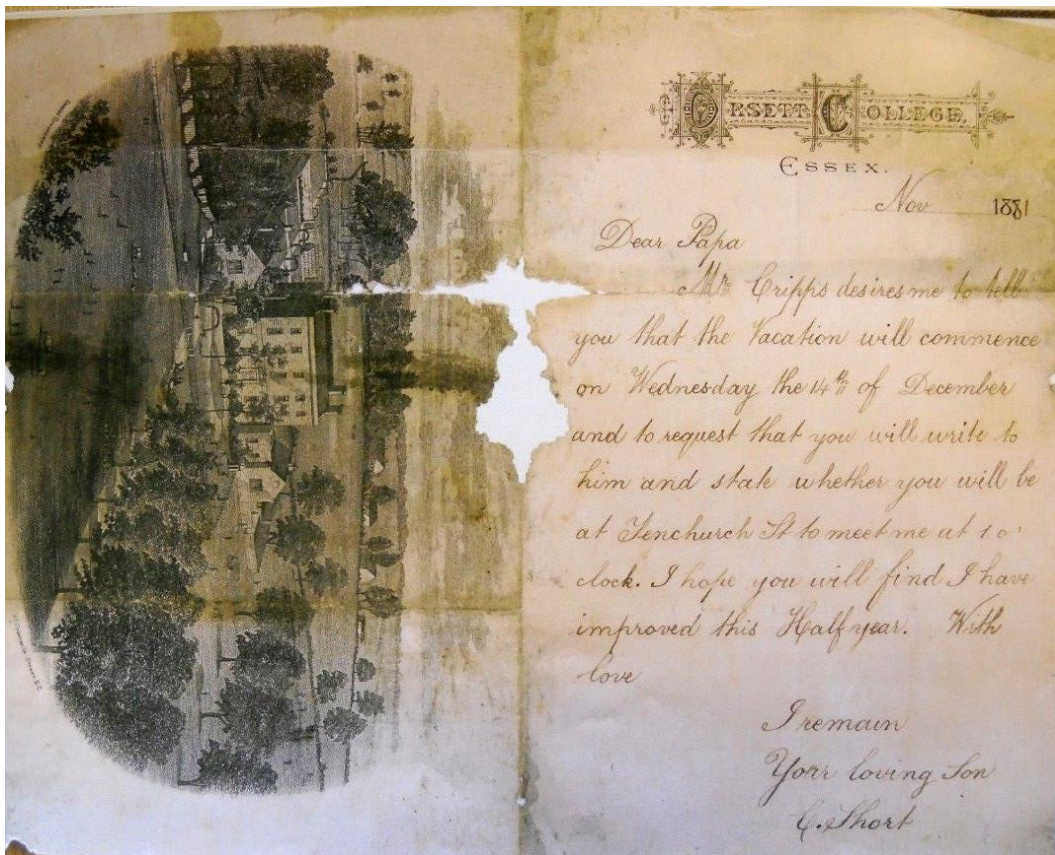 ORSETT COLLEGE,
ESSEX.
Nov 1881
Dear Papa
Mr Cripps desires me to tell
you that the Vacation will commence
on Wednesday the 14th of December
and to request that you will write to
him and state whether you will be
at Fenchurch St to meet me at 1 o'
clock. I hope you will find I have
improved this Half year. With
love
I remain
Your loving Son
C. Short